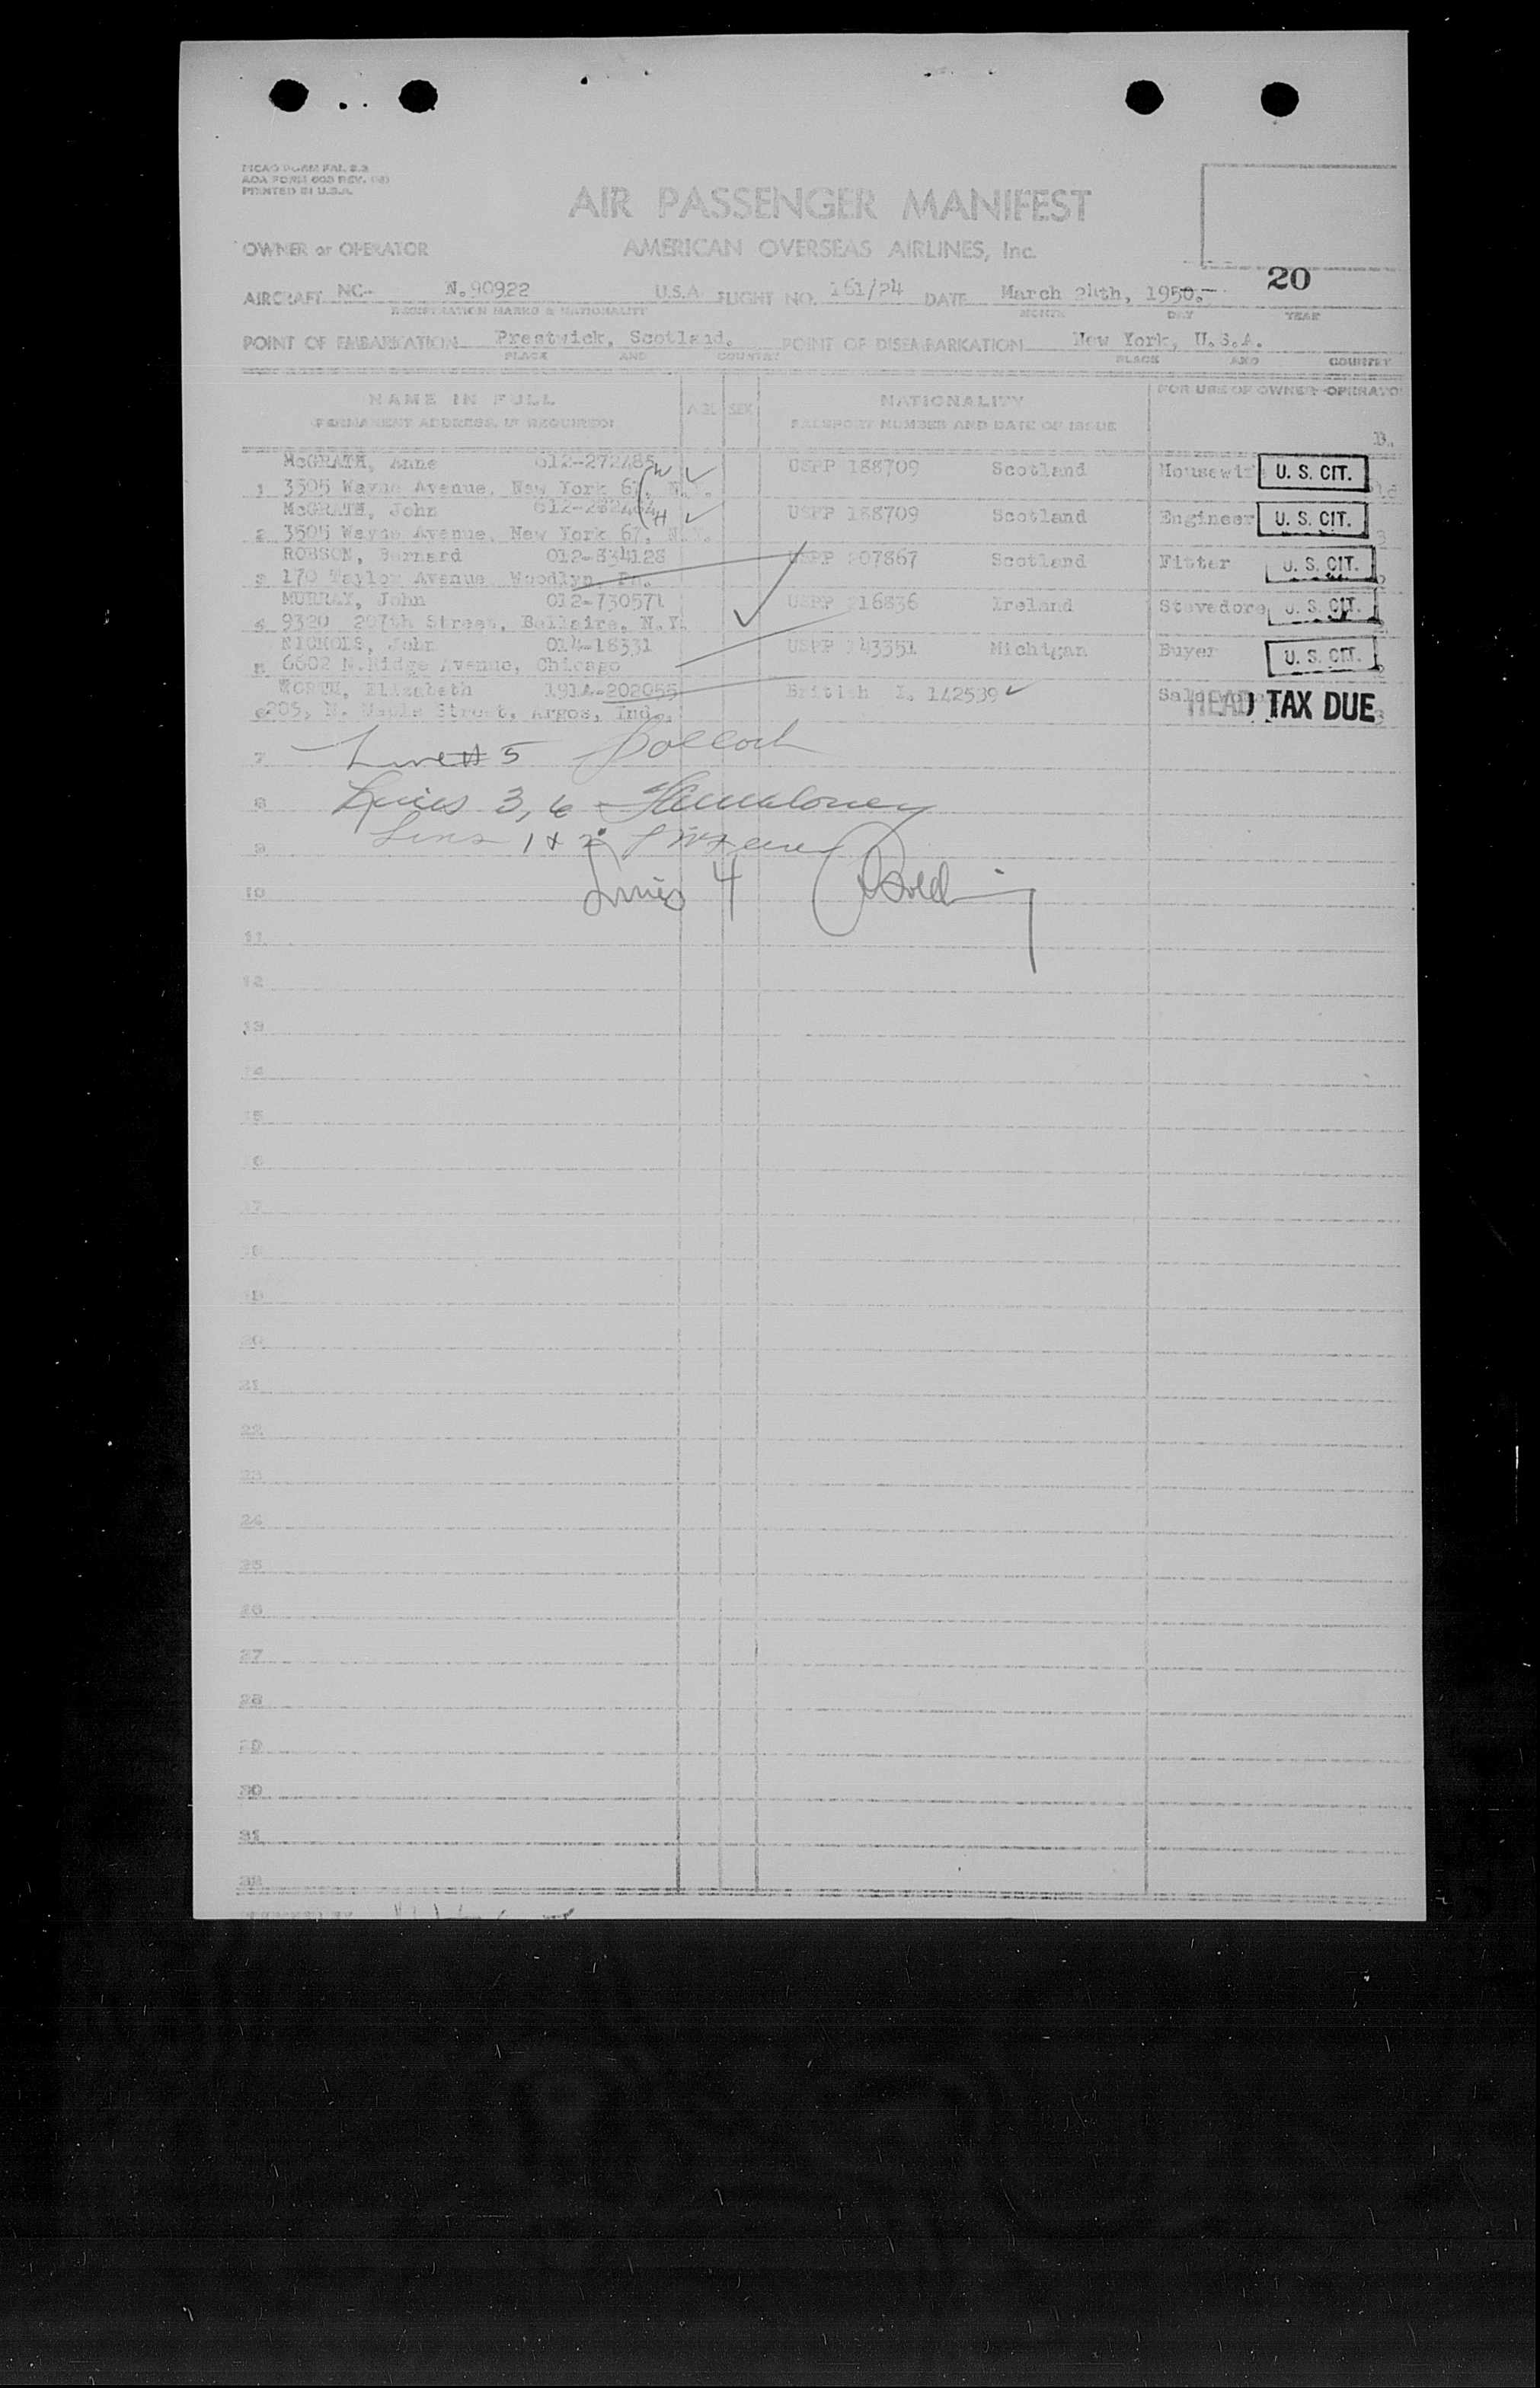 ICAO FORM FAL 2.3
AOA FORM 603 REV.
PRINTED IN U.S.A.
AIR PASSENGER MANIFEST
OWNER or OPERATOR AMERICAN OVERSEAS AIRLINES, Inc.
20
AIRCRAFT NC- N.90922 U.S.A. FLIGHT NO. 161/24 DATE March 24th, 1950.
REGISTRATION MARKS & NATIONALITY MONTH DAY YEAR
POINT OF EMBARKATION Prestwick, Scotland. POINT OF DISEMBARKATION New York, U.S.A.
PLACE AND COUNTRY PLACE AND COUNTRY
NAME IN FULL AGE SEX NATIONALITY FOR USE OF OWNER-OPERATO
PERMANENT ADDRESS, IF REQUIRED PASSPORT NUMBER AND DATE OF ISSUE
B.
McGRATH, Anne 012-272485 W USPP 188709 Scotland Housewif U. S. CIT.
1 3505 Wayne Avenue, New York 67, N.Y.
McGRATH, John 612-282464 H USPP 188709 Scotland Engineer U. S. CIT.
2 3505 Wayne Avenue, New York 67, N.Y.
ROBSON, Bernard 012-834128 USPP 207867 Scotland Fitter U. S. CIT.
3 170 Taylor Avenue Woodlyn, Pa.
MURRAY, John 012-730571 USPP 216836 Ireland Stevedore U. S. CIT.
4 9320 207th Street, Bellaire, N.Y.
NICHOLS, John 014-18331 USPP 243351 Michigan Buyer U. S. CIT.
5 6602 N.Ridge Avenue, Chicago
WORTH, Elizabeth 191A-202056 British L. 142539 HEAD TAX DUE
6 205, N. Maple Street, Argos, Ind.
7 Line # 5 Pollock
8 Lines 3, 6
9 Lines 1 & 2
10 Lines 4
11
12
13
14
15
16
17
18
19
20
21
22
23
24
25
26
27
28
29
30
31
32